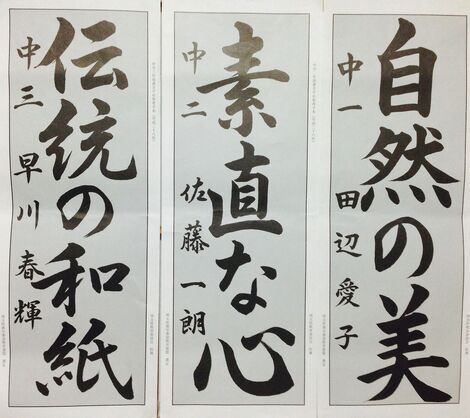 自然の美
中一 田辺愛子
素直な心
中二 佐藤一朗
伝統の和紙
中三 早川春輝